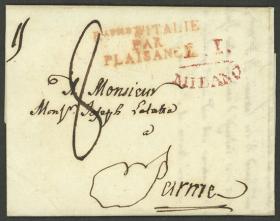 D'ITALIE
PAR
PLAISANCE
L. I.
MILANO
6
A Monsieur
Mons.r Joseph
a
Parme